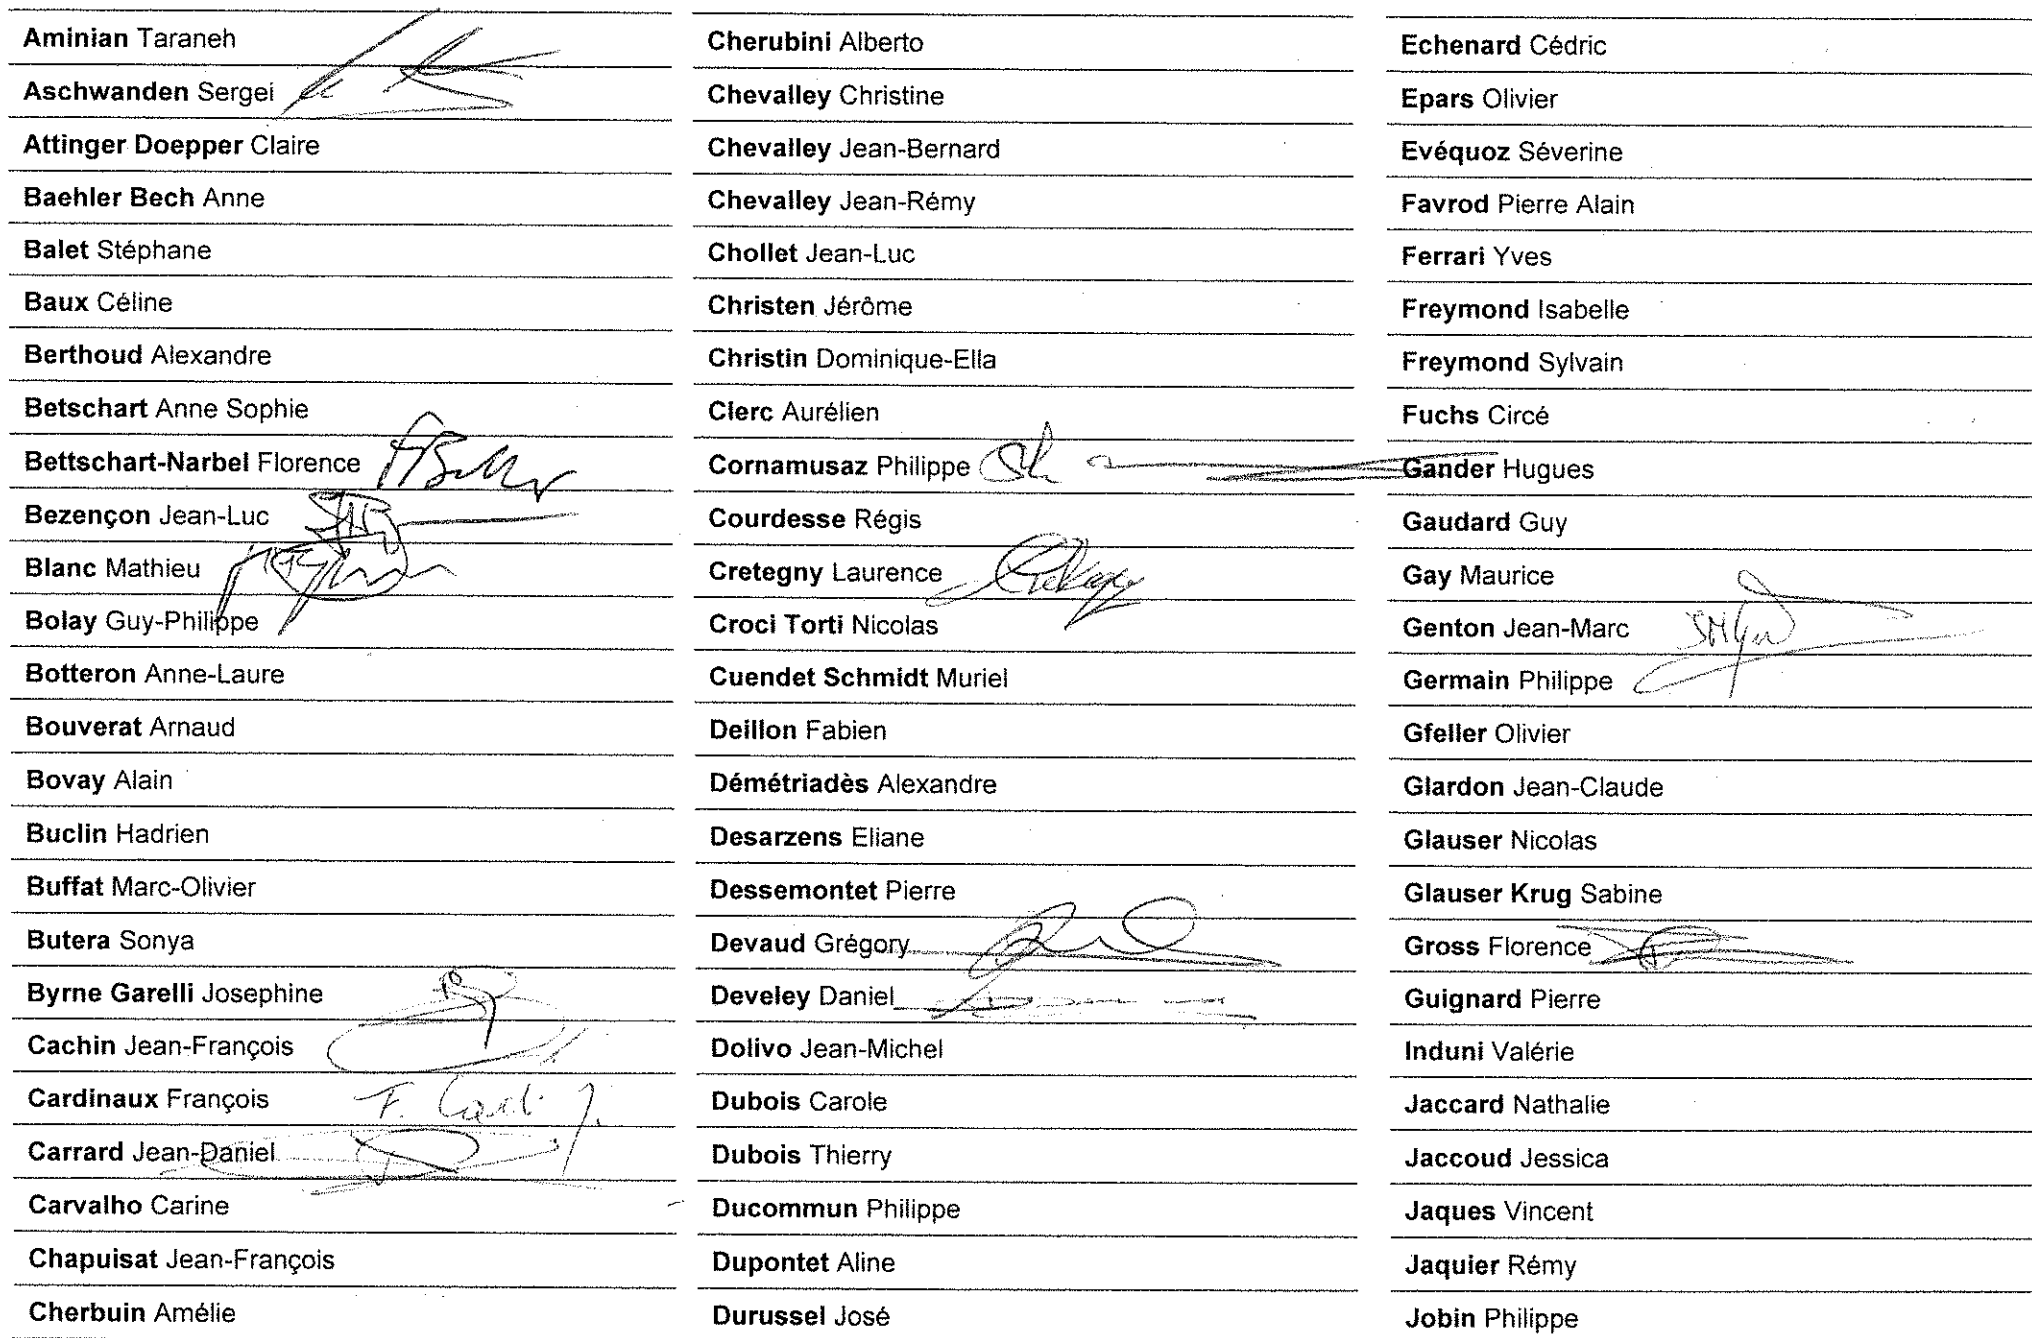 Aminian Taraneh
Aschwanden Sergei
Attinger Doepper Claire
Baehler Bech Anne
Balet Stéphane
Baux Céline
Berthoud Alexandre
Betschart Anne Sophie
Bettschart-Narbel Florence
Bezençon Jean-Luc
Blanc Mathieu
Bolay Guy-Philippe
Botteron Anne-Laure
Bouverat Arnaud
Bovay Alain
Buclin Hadrien
Buffat Marc-Olivier
Butera Sonya
Byrne Garelli Josephine
Cachin Jean-François
Cardinaux François F.
Carrard Jean-Daniel
Carvalho Carine
Chapuisat Jean-François
Cherbuin Amélie
Cherubini Alberto
Chevalley Christine
Chevalley Jean-Bernard
Chevalley Jean-Rémy
Chollet Jean-Luc
Christen Jérôme
Christin Dominique-Ella
Clerc Aurélien
Cornamusaz Philippe
Courdesse Régis
Cretegny Laurence
Croci Torti Nicolas
Cuendet Schmidt Muriel
Deillon Fabien
Démétriadès Alexandre
Desarzens Eliane
Dessemontet Pierre
Devaud Grégory
Develey Daniel
Dolivo Jean-Michel
Dubois Carole
Dubois Thierry
Ducommun Philippe
Dupontet Aline
Durussel José
Echenard Cédric
Epars Olivier
Evéquoz Séverine
Favrod Pierre Alain
Ferrari Yves
Freymond Isabelle
Freymond Sylvain
Fuchs Circé
Gander Hugues
Gaudard Guy
Gay Maurice
Genton Jean-Marc
Germain Philippe
Gfeller Olivier
Glardon Jean-Claude
Glauser Nicolas
Glauser Krug Sabine
Gross Florence
Guignard Pierre
Induni Valérie
Jaccard Nathalie
Jaccoud Jessica
Jaques Vincent
Jaquier Rémy
Jobin Philippe